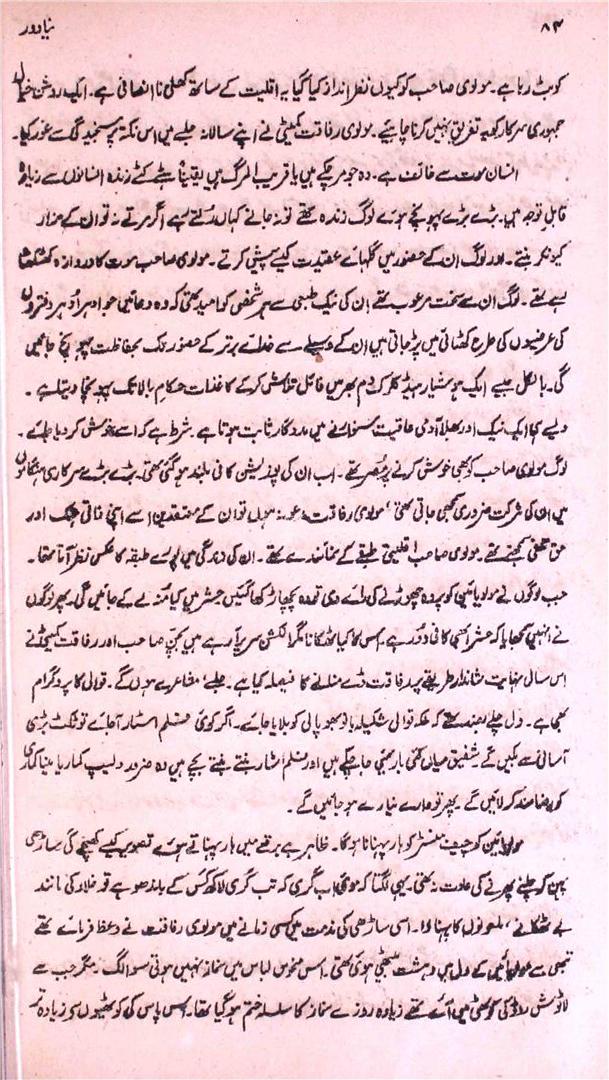 ۸۴
نیادور
کوبٹ رہا ہے۔ مولوی صاحب کو کیوں نظر انداز کیا گیا یہ اقلیت کے ساتھ کھلی نا انصافی ہے۔ ایک روشن خیال
جمہوری سرکار کو یہ تفریق نہیں کرنا چاہیئے۔ مولوی رفاقت کمیٹی نے اپنے سالانہ جلسے میں اس نکتہ پر سنجیدگی سے غور کیا۔
انسان موت سے خائف ہے۔ وہ جو مر چکے ہیں یا قریب المرگ ہیں یقیناً ہٹے کٹے زندہ انسانوں سے زیادہ
قابل توجہ ہیں۔ بڑے بڑے پہونچے ہوئے لوگ زندہ تھے تو نہ جانے کہاں رُلتے رہے اگر مرتے نہ تو ان کے مزار
کیونکر بنتے۔ اور لوگ ان کے حضور میں گلہائے عقیدت کیسے پیش کرتے۔ مولوی صاحب موت کا دروازہ کھٹکھٹا
رہے تھے۔ لوگ ان سے سخت مرعوب تھے ان کی نیک طبعی سے ہر شخص کو امید تھی کہ وہ دعائیں جو ادھر اُدھر دفتروں
کی عرضیوں کی طرح کھٹائی میں پڑ جاتی ہیں ان کے وسیلے سے خدائے برتر کے حضور تک بحفاظت پہونچ جائیں
گی۔ بالکل جیسے ایک ہوشیار ہیڈ کلرک دم بھر میں فائل تلاش کر کے کاغذات حکام بالا تک پہونچا دیتا ہے۔
ویسے ہی ایک نیک اور بھلا آدمی عاقبت سنوارنے میں مددگار ثابت ہوتا ہے بشرط ہے کہ اسے خوش کر دیا جائے۔
لوگ مولوی صاحب کو بھی خوش کرنے پر مُصر تھے۔ اب ان کی پوزیشن کافی بلند ہو گئی تھی۔ بڑے بڑے سرکاری ہنگاموں
میں ان کی شرکت ضروری سمجھی جاتی تھی، مولوی رفاقت مدعو نہ ہوں تو ان کے معتقدین اسے اپنی ذاتی ہتک اور
حق تلفی سمجھتے تھے۔ مولوی صاحب اقلیتی طبقے کے نمائندے تھے۔ ان کی زندگی میں پورے طبقہ کا عکس نظر آتا تھا۔
جب لوگوں نے مولویائین کو پردہ چھوڑنے کی رائے دی تو وہ پچھاڑ کھا گئیں حشر میں کیا مُنہ لے کے جائیں گی۔ پھر لوگوں
نے انہیں سمجھایا کہ حشر ابھی کافی دُور ہے۔ اس کا کیا ٹھکانا مگر الکشن سر پر آ رہے ہیں صاحب اور رفاقت کمیٹی نے
اس سال نہایت شاندار طریقے پر رفاقت ڈے منانے کا فیصلہ کیا ہے۔ جلسے، مشاعرے ہوں گے۔ قوالی کا پروگرام
بھی ہے۔ دل جلے بضد تھے کہ ملکہ قوالی شکیلہ بانو بھوپالی کو بلایا جائے۔ اگر کوئی فلم اسٹار آجائے تو ٹکٹ بڑی
آسانی سے بکیں گے شفیق میاں کئی بار بمبئی جا چکے ہیں اور فلم اسٹار بنتے بنتے بچے ہیں وہ ضرور دلیپ کمار یا مینا کماری
کو رضامند کر لائیں گے۔ پھر تو وارے نیارے ہو جائیں گے۔
مولویائین کو چیف منسٹر کو ہار پہنانا ہوگا۔ ظاہر ہے برقعے میں ہار پہناتے ہوئے تصویر کیسے کھنچے گی ساڑھی
پہن کر چلنے پھرنے کی عادت نہ تھی۔ یہی لگتا کہ موئی اب گری کہ تب گری لاکھ کس کے باندھو ہے تو فلاد کی مانند
بے ٹھکانے، ملعونوں کا پہناوا۔ اسی ساڑھی کی مذمت میں کسی زمانے میں مولوی رفاقت نے وعظ فرمائے تھے
تبھی سے مولویائین کے دل میں دہشت بیٹھی ہوئی تھی۔ اس منحوس لباس میں نماز نہیں ہوتی سو الگ۔ مگر جب سے
لاٹوش روڈ کی کوٹھی میں آئے تھے زیادہ روزے نماز کا سلسلہ ختم ہو گیا تھا۔ آس پاس کی کوٹھیوں میں زیادہ تر